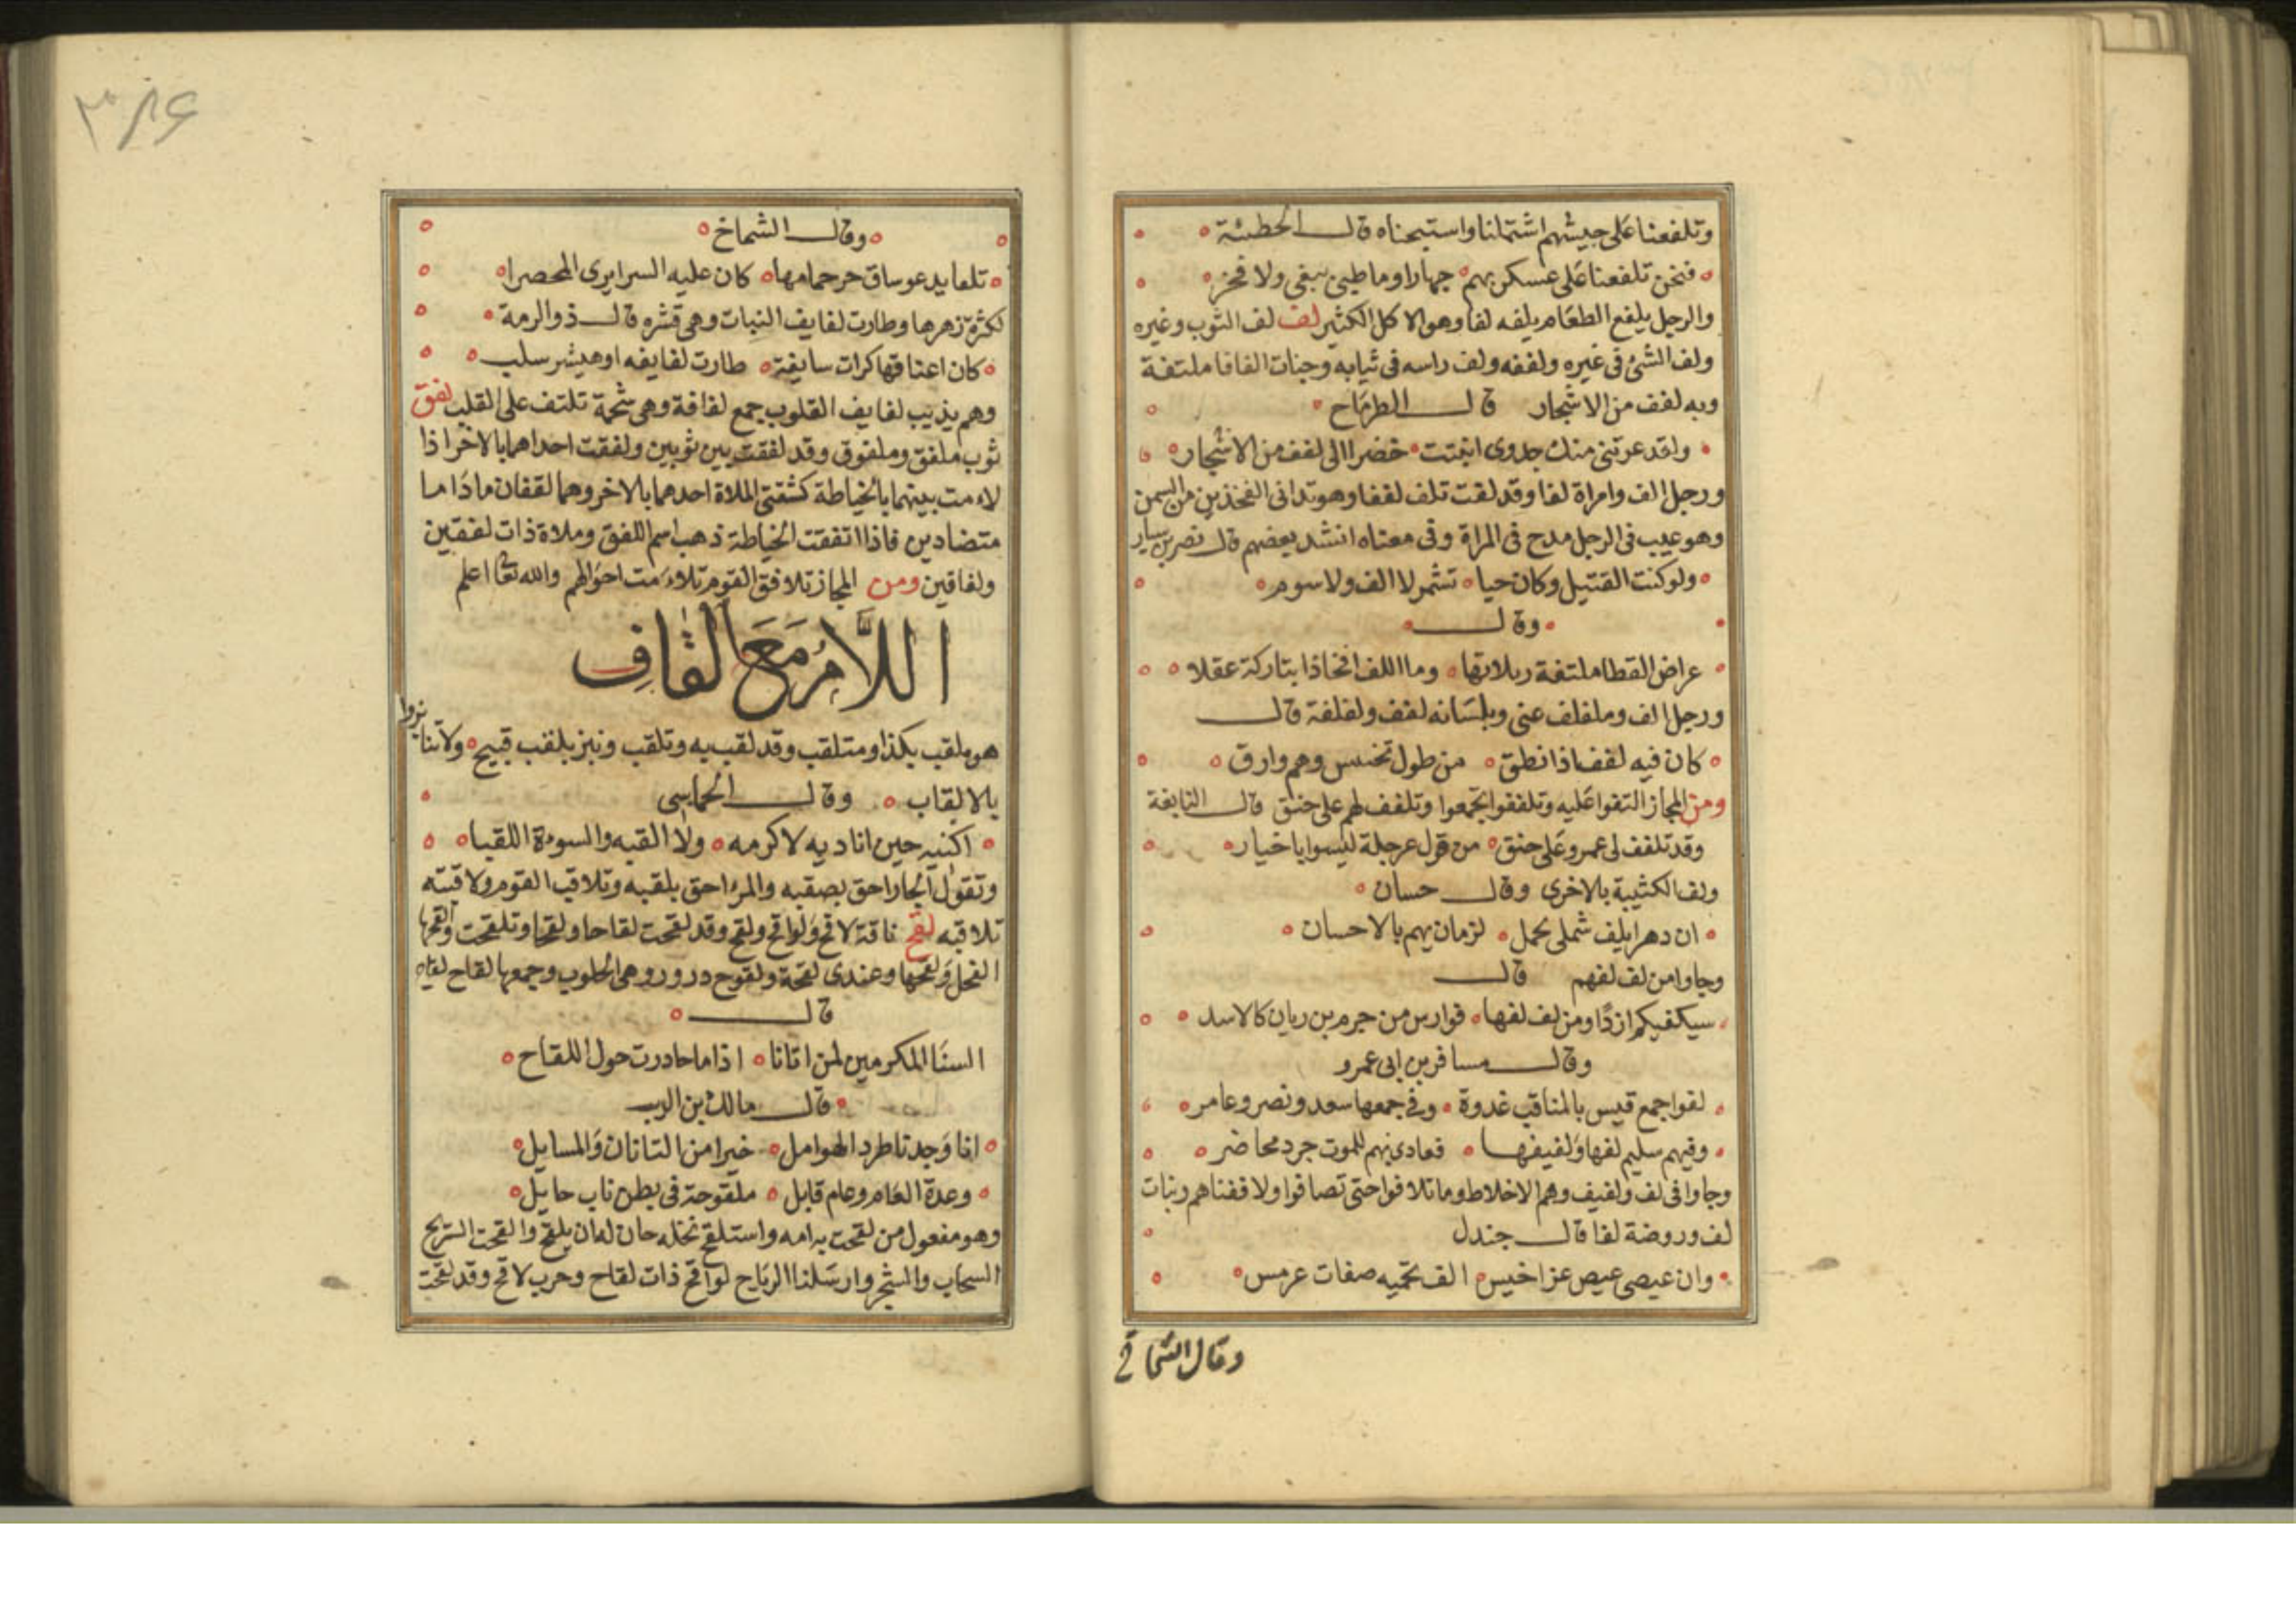 وتلفعنا على جيشهم اشتملنا واستبحناه قال الحطيئة
فنحن تلفعنا على عسكريهم جهارا وما طبى ببغى ولا فخر
والرجل يلفع الطعام يلفه لفا وهو الاكل الكثير لفف لف الثوب وغيره
ولف الشئ فى غيره ولففه ولف راسه فى ثيابه وجنات الفافا ملتفة
وبه لفف من الاشجار قال الطرماح
ولقد عرتنى منك جدوى انبتت خضرا الى لفف من الاشجار
ورجل الف وامراة لفا وقد لفت تلف لففا وهو تدانى الفخذين من السمن
وهو عيب فى الرجل مدح فى المراة وفى معناه انشد بعضهم قال نصر بن سيار
ولو كنت القتيل وكان حيا تشمر لا الف ولا سوم
وقال
عراض القطا ملتفة ربلاتها وما اللف افخاذا بتاركة عقلا
ورجل الف وملفلف عنى وبلسانه لفف ولفلفة قال
كان فيه لففا اذا نطق من طول تحبس وهم وارق
ومن المجاز التفوا عليه وتلففوا تجمعوا وتلفف لهم على حنق قال النابغة
وقد تلفف لى عمرو على حنق من قول عرجلة ليسوا باخيار
ولف الكثيبة بالاخرى وقال حسان
ان دهرا يلف شملى بجمل لزمان يهم بالاحسان
وجاوا من لف لفهم قال
سيكفيكم ازدا ومن لف لفها فوارس من جرم بن ريان كالاسد
وقال مسافر بن ابى عمرو
لفوا جمع قيس بالمناقب غدوة وفى جمعها سعد ونصر وعامر
وفيهم سليم لفها ولفيفها فعادى بهم للموت جرد محاضر
وجاوا فى لف ولفيف وهم الاخلاط وما تلافوا حتى تصافوا ولاففناهم ونبات
لف وروضة لفا قال جندل
وان عيصى عيص عز اخيس الف تحميه صفات عرمس
وقال الشماخ
٣٨٦
وقال الشماخ
حر حمامها كان عليه السرايرى المحصرا
لكثرة زهرها وطارت لفايف النبات وهى قشره قال ذو الرمة
كان اعناقها كرات سايفة طارت لفايفه او هيشر سلب
وهم يذيب لفايف القلوب جمع لفافة وهى شحمة تلتف على القلب لفق
ثوب ملفق وملفوق وقد لفقت بين ثوبين ولفقت احداهما بالاخر اذا
لاءمت بينهما بالخياطة كشفتى الملاة احدهما بالاخر وهما لفقان ما داما
متضادين فاذا اتفقت الخياطة ذهب اسم اللفق وملاة ذات لفقين
ولفاقين ومن المجاز تلافق القوم تلاءمت احوالهم والله تعا اعلم
اللام مع القاف
هو ملقب بكذا ومتلقب وقد لقب به وتلقب ونبز بلقب قبيح ولا تنابزوا
بالالقاب وقال الحماسى
اكنيه حين اناديه لاكرمه ولا القبه والسوءة اللقبا
وتقول الجار احق بصقبه والمرء احق بلقبه وتلاقب القوم ولاقبته
تلاقبه لقح ناقة لاقح ولواقح ولقح وقد لقحت لقاحا ولقحا وتلقحت والقحها
الفحل ولقحها وعندى لقحة ولقوح درور وهى الحلوب وجمعها لقاح
قال
السنا المكرمين لمن اتانا اذا ما حادرت حول اللقاح
قال مالك بن الريب
انا وجدنا طرد الهوامل خيرا من التانان والمسايل
وعدة العام وعام قابل ملقوحة فى بطن ناب حايل
وهو مفعول من لقحت به امه واستلقح نخله حان له ان يلقح والقحت الريح
السحاب والشجر وارسلنا الرياح لواقح ذات لقاح وحرب لاقح وقد لقحت